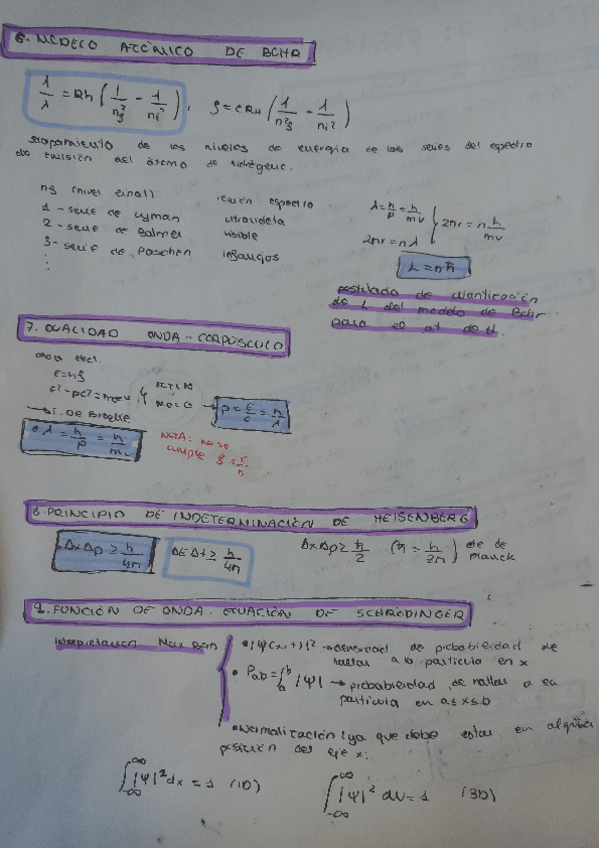 6. MODELO ATÓMICO DE BOHR
1/λ = RH (1/nf² - 1/ni²), f = cRH (1/nf² - 1/ni²)
de los niveles de energía de las series del espectro
de emisión del átomo de hidrógeno.
nf (nivel final) región espectro
1 - serie de Lyman ultravioleta
2 - serie de Balmer visible
3 - serie de Paschen infrarrojos
λ = h/p = h/mv
2πr = nλ
2πr = n h/mv
L = nħ
postulado de cuantización
de L del modelo de Bohr
para el at de H.
7. DUALIDAD ONDA-CORPÚSCULO
onda elect.
E = hf
p = E/c = h/λ
DE BROGLIE
λ = h/p = h/mv
NOTA: no se
cumple f = E/h
8. PRINCIPIO DE INDETERMINACIÓN DE HEISENBERG
ΔxΔp ≥ h/4π
ΔEΔt ≥ h/4π
ΔxΔp ≥ ħ/2 (ħ = h/2π) cte de
Planck
9. FUNCIÓN DE ONDA. ECUACIÓN DE SCHRÖDINGER
Interpretación Max Born
• |Ψ(x,t)|² → densidad de probabilidad de
hallar a la partícula en x
• Pab = ∫ₐᵇ |Ψ| → probabilidad de hallar a la
partícula en a≤x≤b
• Normalización (ya que debe estar en alguna
posición del eje x:
∫₋∞^∞ |Ψ|² dx = 1 (1D)
∫₋∞^∞ |Ψ|² dV = 1 (3D)